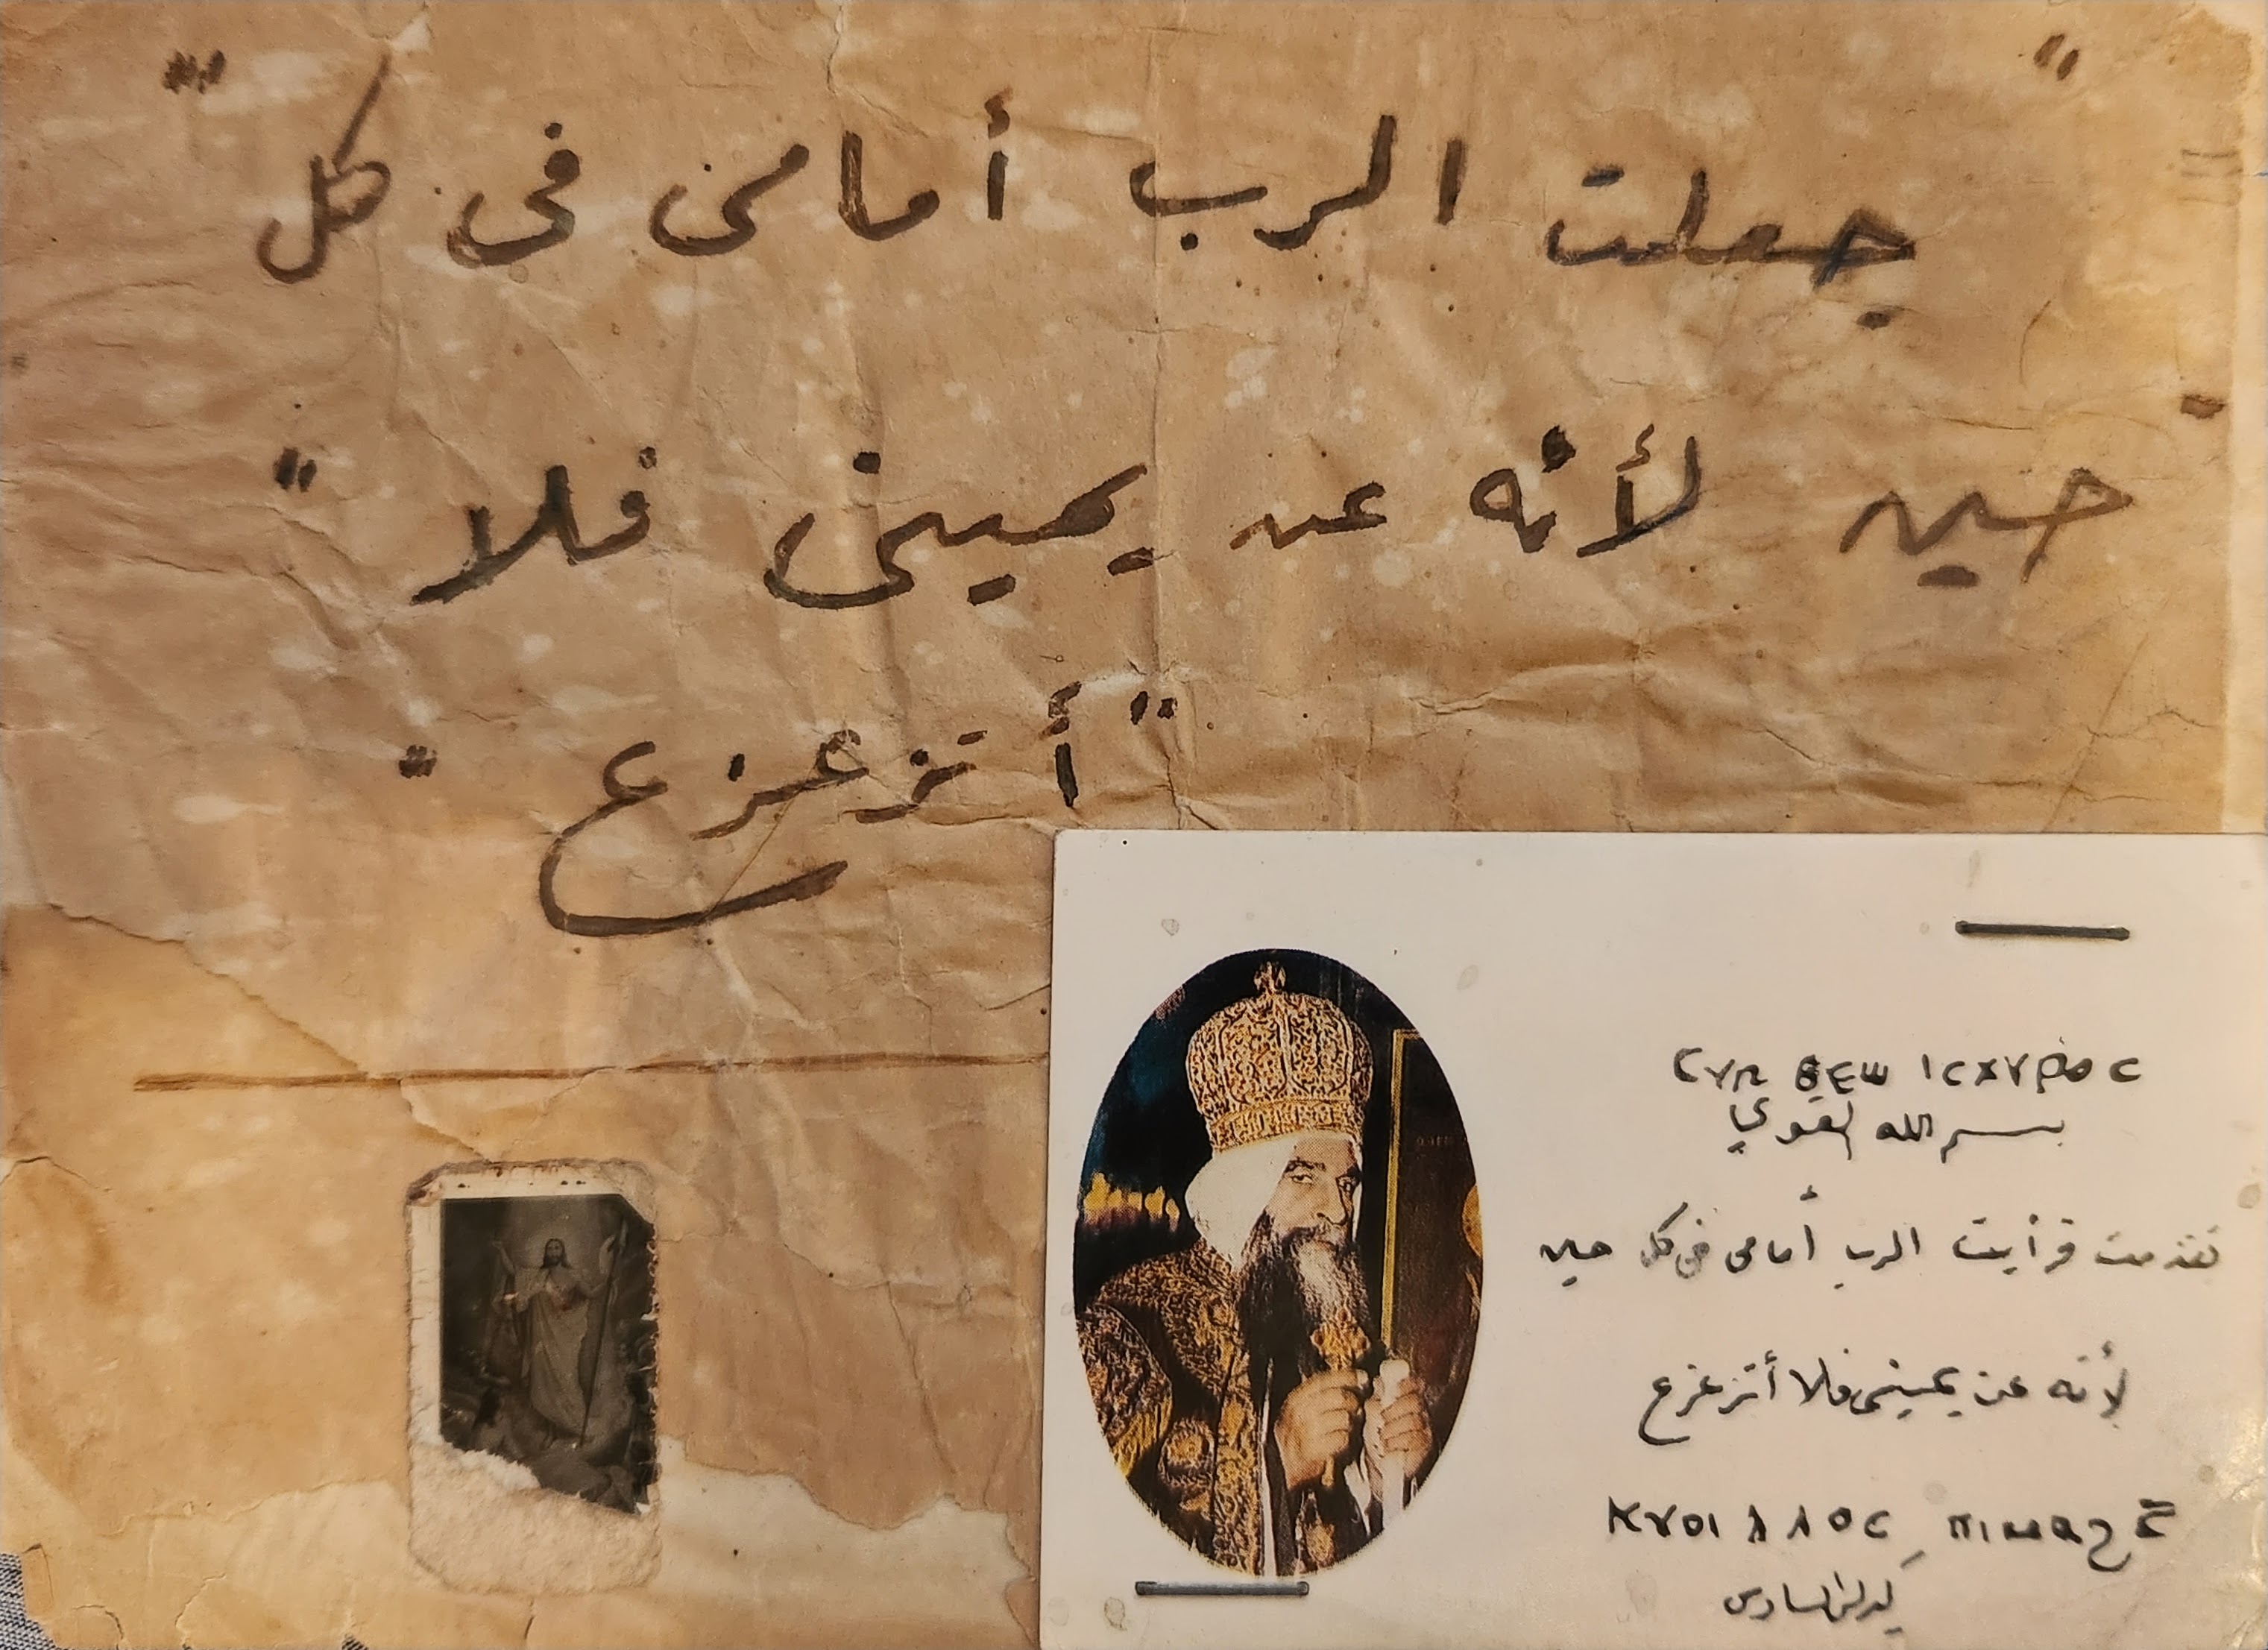 " جعلت الرب أمامى فى كل "
حين لأنه عن يمينى فلا "
" أتزعزع "
ⲤⲨⲚ ⲐⲈⲰ ⲒⲤⲬⲨⲢⲞⲤ
بسم الله القوي
تقدمت فرأيت الرب أمامى فى كل حين
لأنه عن يمينى فلا أتزعزع
ⲔⲨⲢⲒⲖⲖⲞⲤ ⲠⲒⲘⲀϨ ⲋ̅
كيرلس السادس